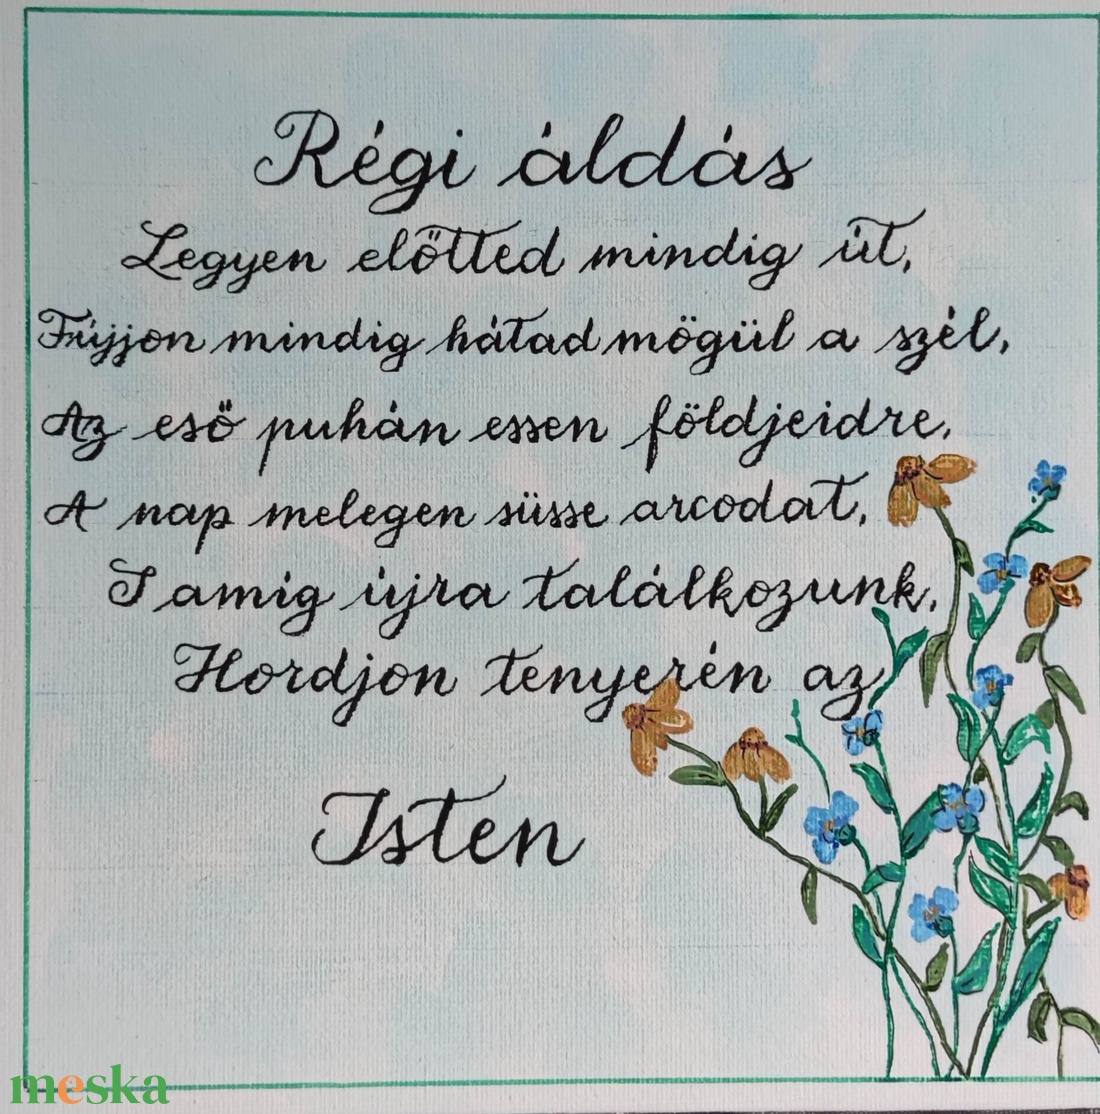 Régi áldás
Legyen előtted mindig út,
Fújjon mindig hátad mögül a szél,
Az eső puhán essen földjeidre,
A nap melegen süsse arcodat,
S amíg újra találkozunk,
Hordjon tenyerén az
Isten
meska